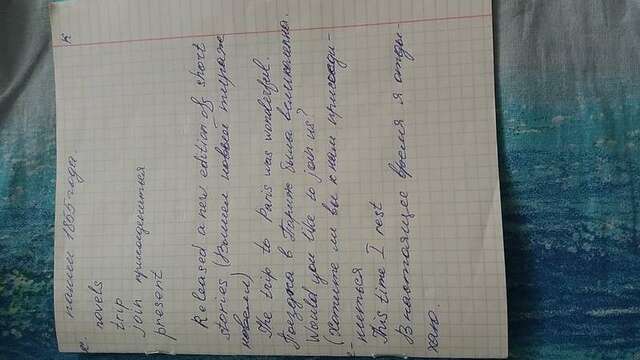 нашли 1865 года.
novels
trip
join присоединиться
present
Released a new edition of short
stories (Вышел новый тираж
новелл)
The trip to Paris was wonderful.
Поездка в Париж была великолепна.
Would you like to join us?
(Хотите ли вы к нам присоеди-
-ниться
This time I rest
В настоящее время я отды-
хаю.